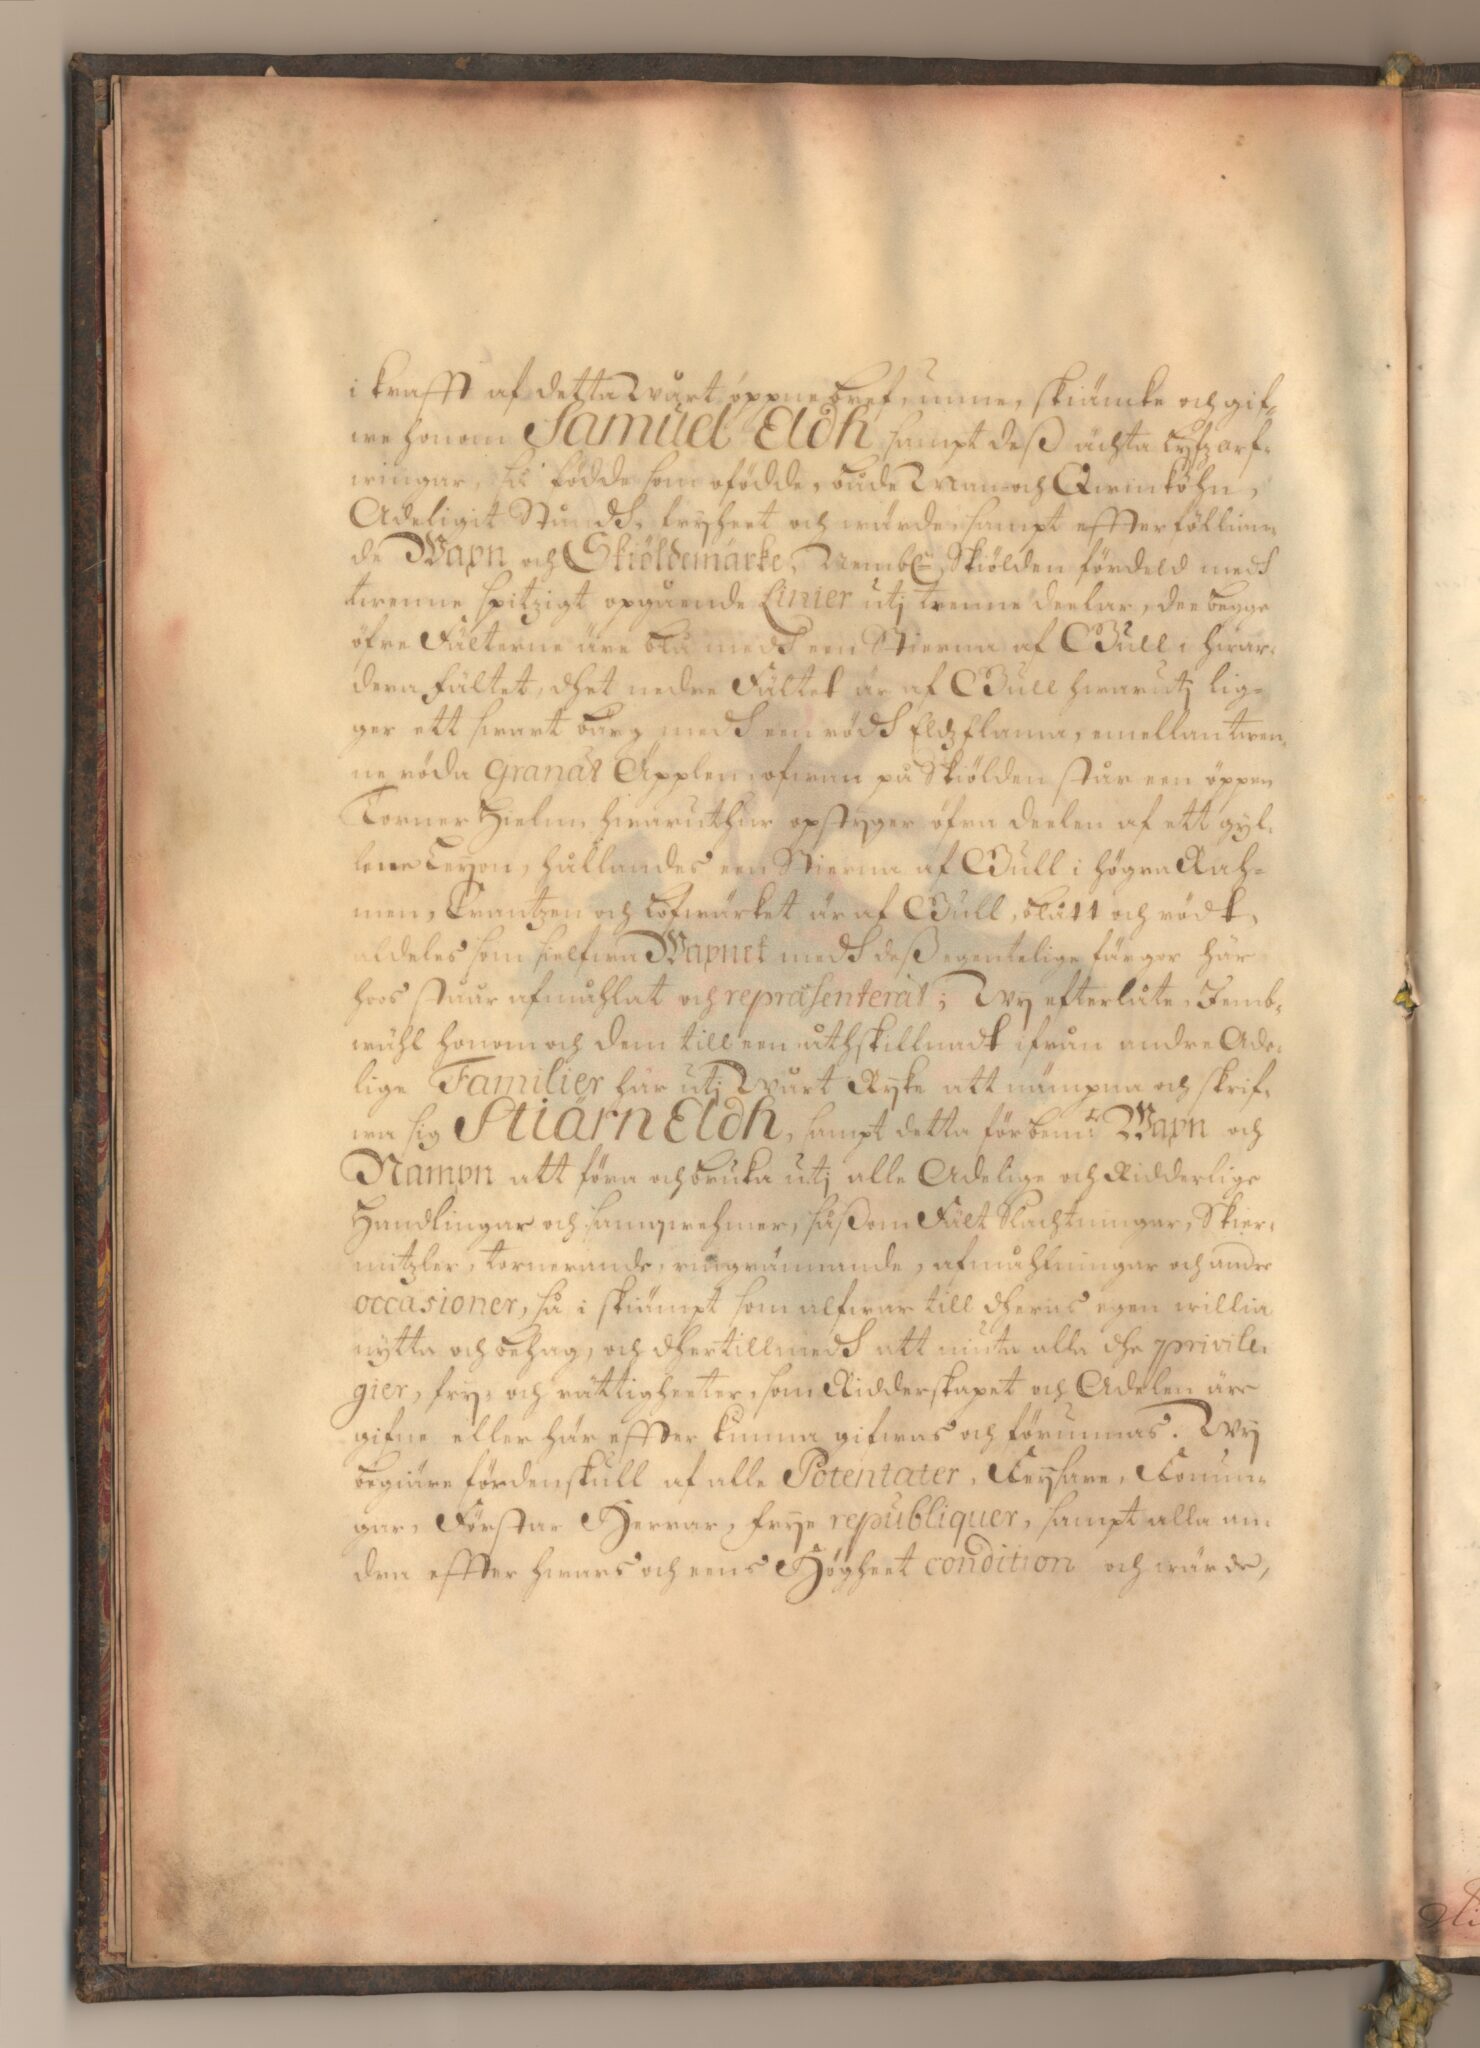 i krafft af detta Wårt öppne bref, unne, skiäncke och gif-
we honom Samuel Eldh sampt deß ächta Lyfzarf-
wingar, så födde som ofödde, både Man- och Qwinköhn,
Adeligit Stånds, fryheet och wärde, sampt effterföllian-
de Wapn och Skiöldemärke, Nembl. Skiölden fördeld medh
twenne spitzigt opgående Linier utj trenne deelar, dee begge
öfre Fälterne äre blå medh een Stierna af Gull i hwar-
dera fältet, dhet nedre Fältet är af Gull hwarutj lig-
ger ett swart berg medh een rödh Eldzflama, emellan twen-
ne röda Granat Äpplen, ofwan på Skiölden står een öppen
Torner Hielm, hwaruthur opstyger öfra deelen af ett gyl-
lene Leyon, hållandes een Stierna af Gull i högra Rah-
men, Crantzen och Löfwärket är af Gull, blått och rödt,
aldeles som sielfwa Wapnet medh deß egentelige färgor här
hoos står afmåhlat och repræsenterat; Wy efterlåte, Jemb-
wähl honom och dem till een åthskillnadt ifrån andre Ade-
lige Familier här utj Wårt Ryke att nämpna och skrif-
wa sig StiärnEldh, sampt detta förbem:te Wapn och
Nampn att föra och bruka utj alle Adelige och Ridderlige
Handlingar och samqwehmer, såßom Fält Slachtningar, Skier-
mitzler, tornerande, ringrännande, afmåhlningar och andre
occasioner, så i skiämpt som alfwar till dheras egen willia
nytta och behag, och dhertillmedh att niuta alla dhe privile-
gier, fry- och rättigheeter, som Ridderskapet och Adelen äre
gifne eller här effter kunna gifwas och förunnas. Wy
begiäre fördenskull af alle Potentater, Keysare, Konun-
gar, Förstar Herrar, frye republiquer, sampt alla an-
dra effter hwars och eens Högheet condition och wärde,